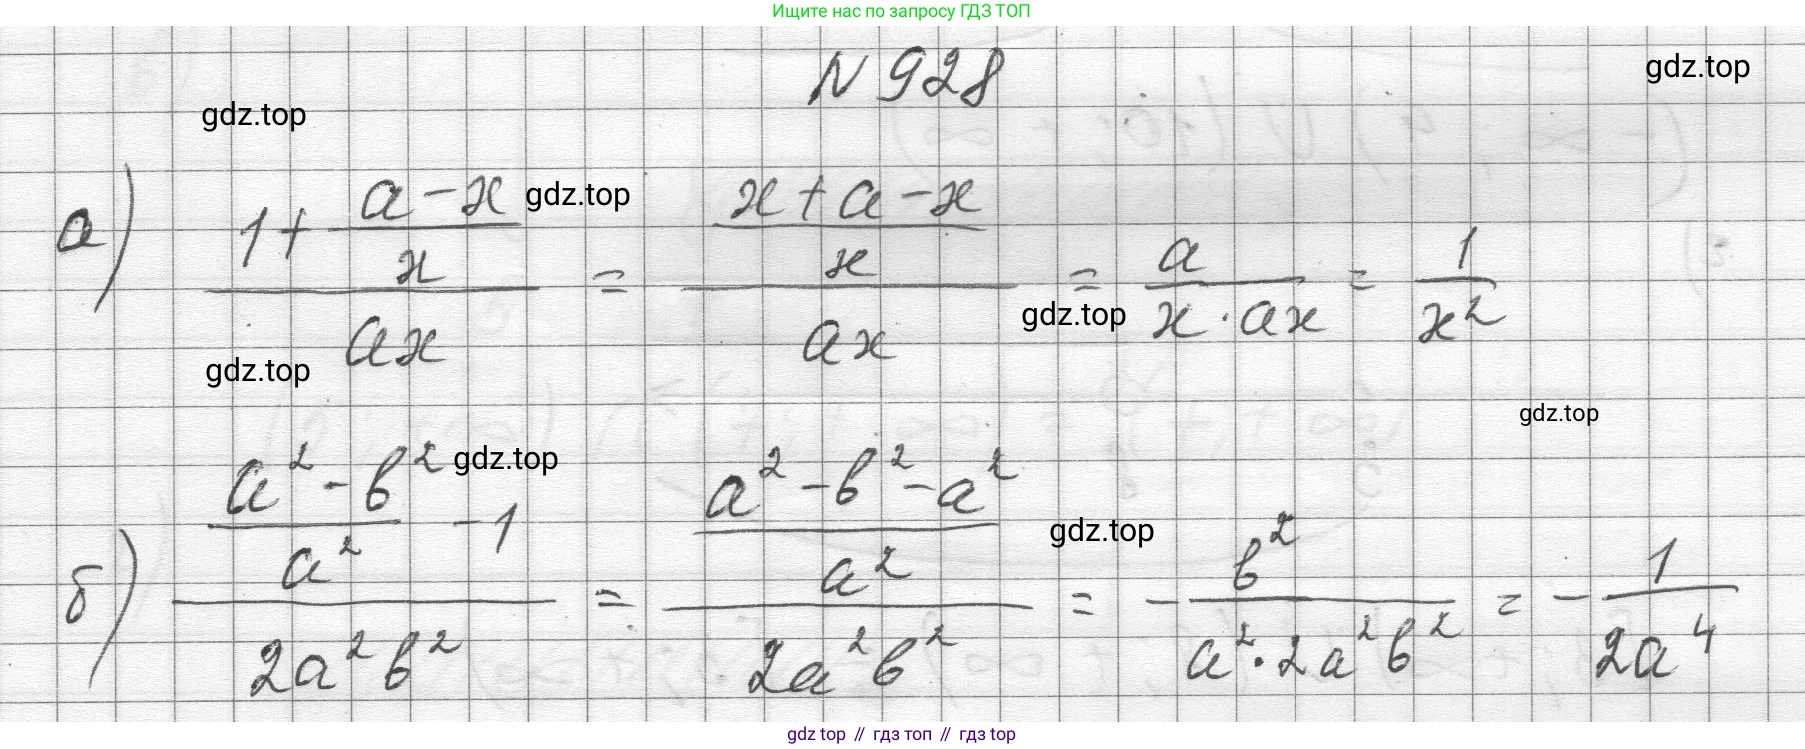 Ищите нас по запросу ГДЗ ТОП
N 928
gdz.top
gdz.top
а) (1 + (a - x)/x)/(ax) = ((x + a - x)/x)/(ax) = a/(x · ax) = 1/x²
gdz.top
gdz.top
gdz.top
gdz.top
б) ((a² - b²)/a² - 1)/(2a²b²) = ((a² - b² - a²)/a²)/(2a²b²) = - b²/(a² · 2a²b²) = - 1/(2a⁴)
gdz.top
gdz.top
gdz top // гдз топ // gdz top